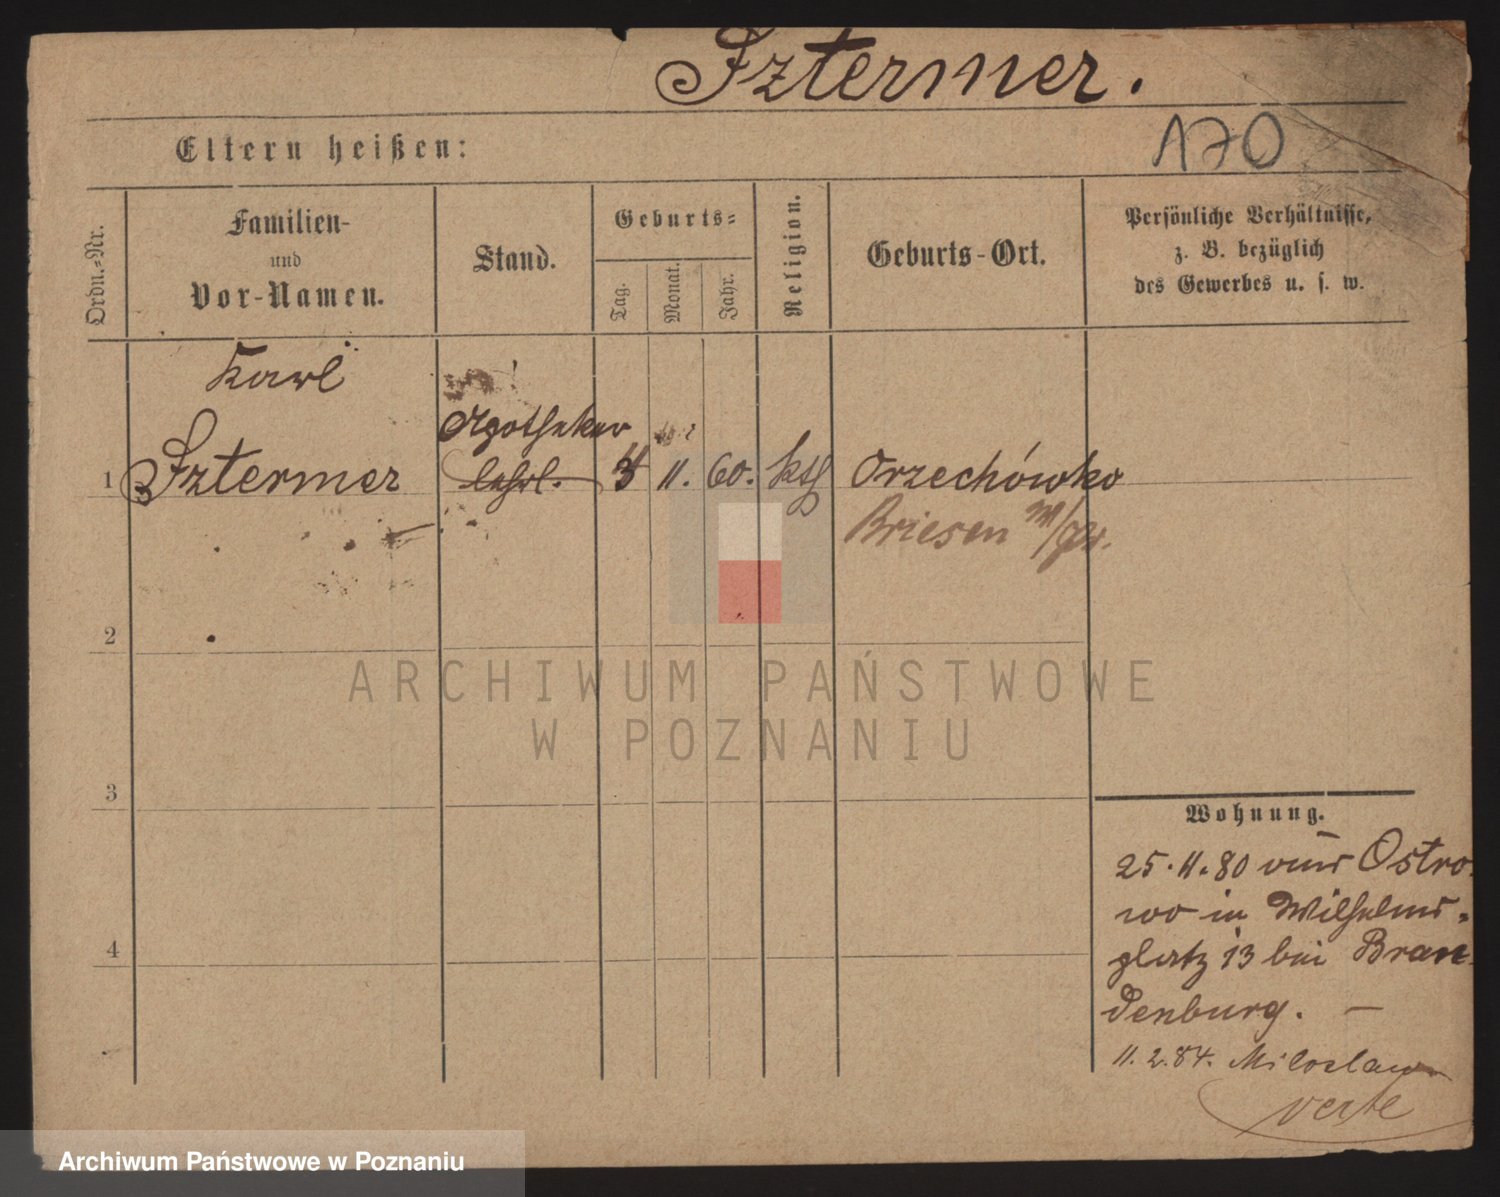 Sztermer.
Eltern heißen:
170
Ordn.-Nr.
Familien-
und
Vor-Namen.
Stand.
Geburts-
Tag.
Monat.
Jahr.
Religion.
Geburts-Ort.
Persönliche Verhältnisse,
z. B. bezüglich
des Gewerbes u. s. w.
Karl
Apotheker
1 Sztermer lehrl. 11. 60. kth Orzechówko
Briesen W/Pr.
2
3
4
Wohnung.
25.11.80 aus Ostro-
wo in Wilhelms-
platz 13 bei Bran-
denburg. —
11.2.84. Miloslaw
verte
ARCHIWUM PAŃSTWOWE
W POZNANIU
Archiwum Państwowe w Poznaniu